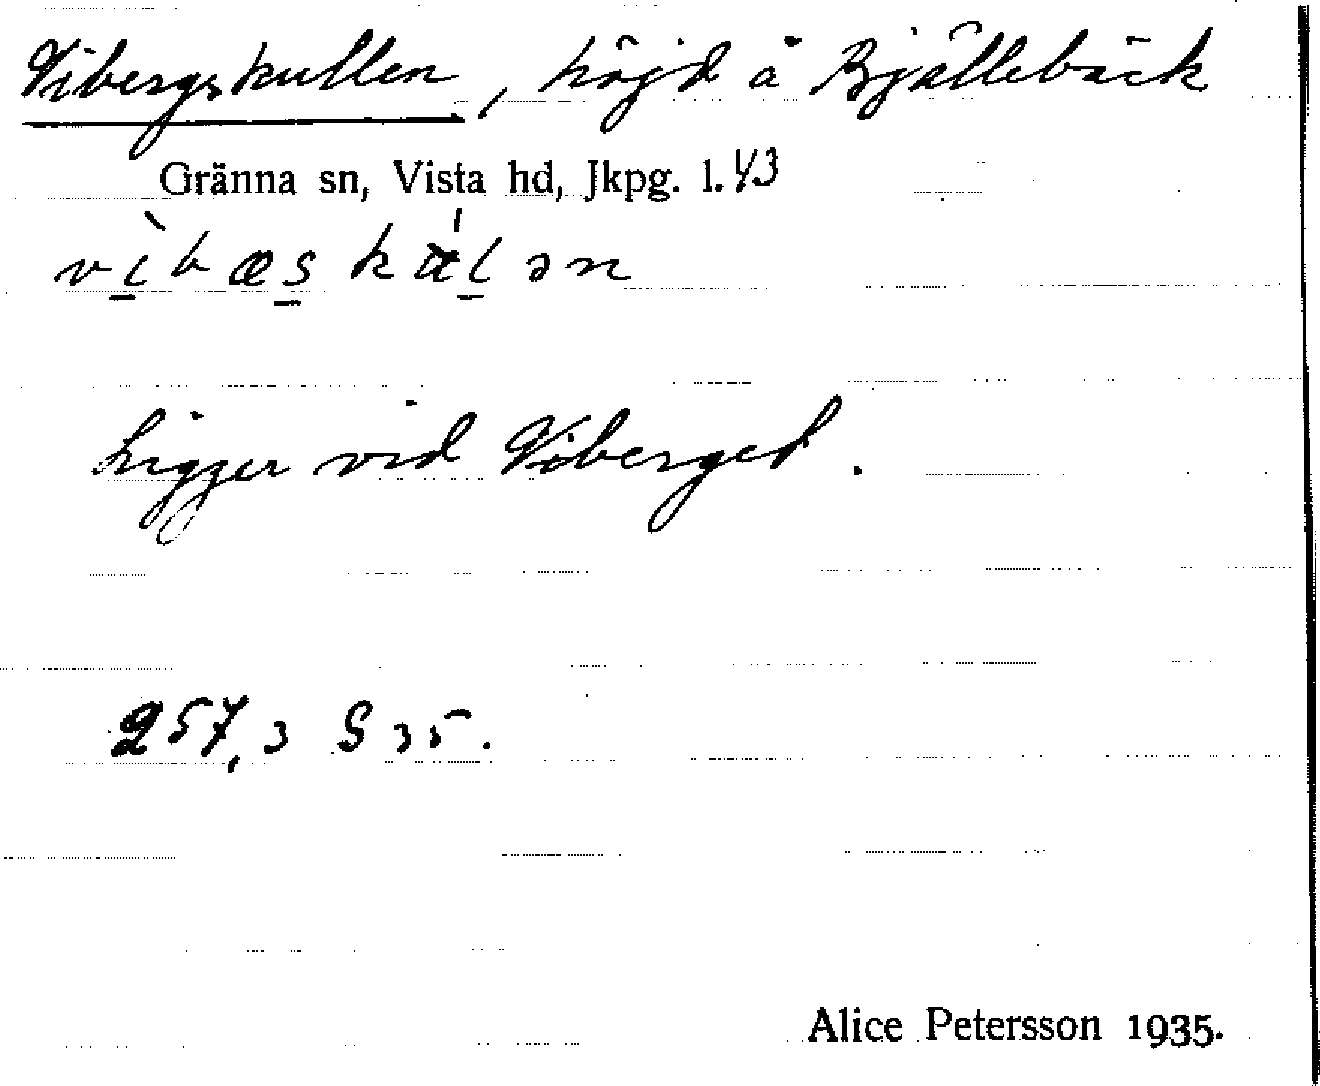 Vibergskullen, höjd å Bjällebäck
Gränna sn, Vista hd, Jkpg. l. 43
vibæskulən
Ligger vid Viberget.
257,3 S 35.
Alice Petersson 1935.